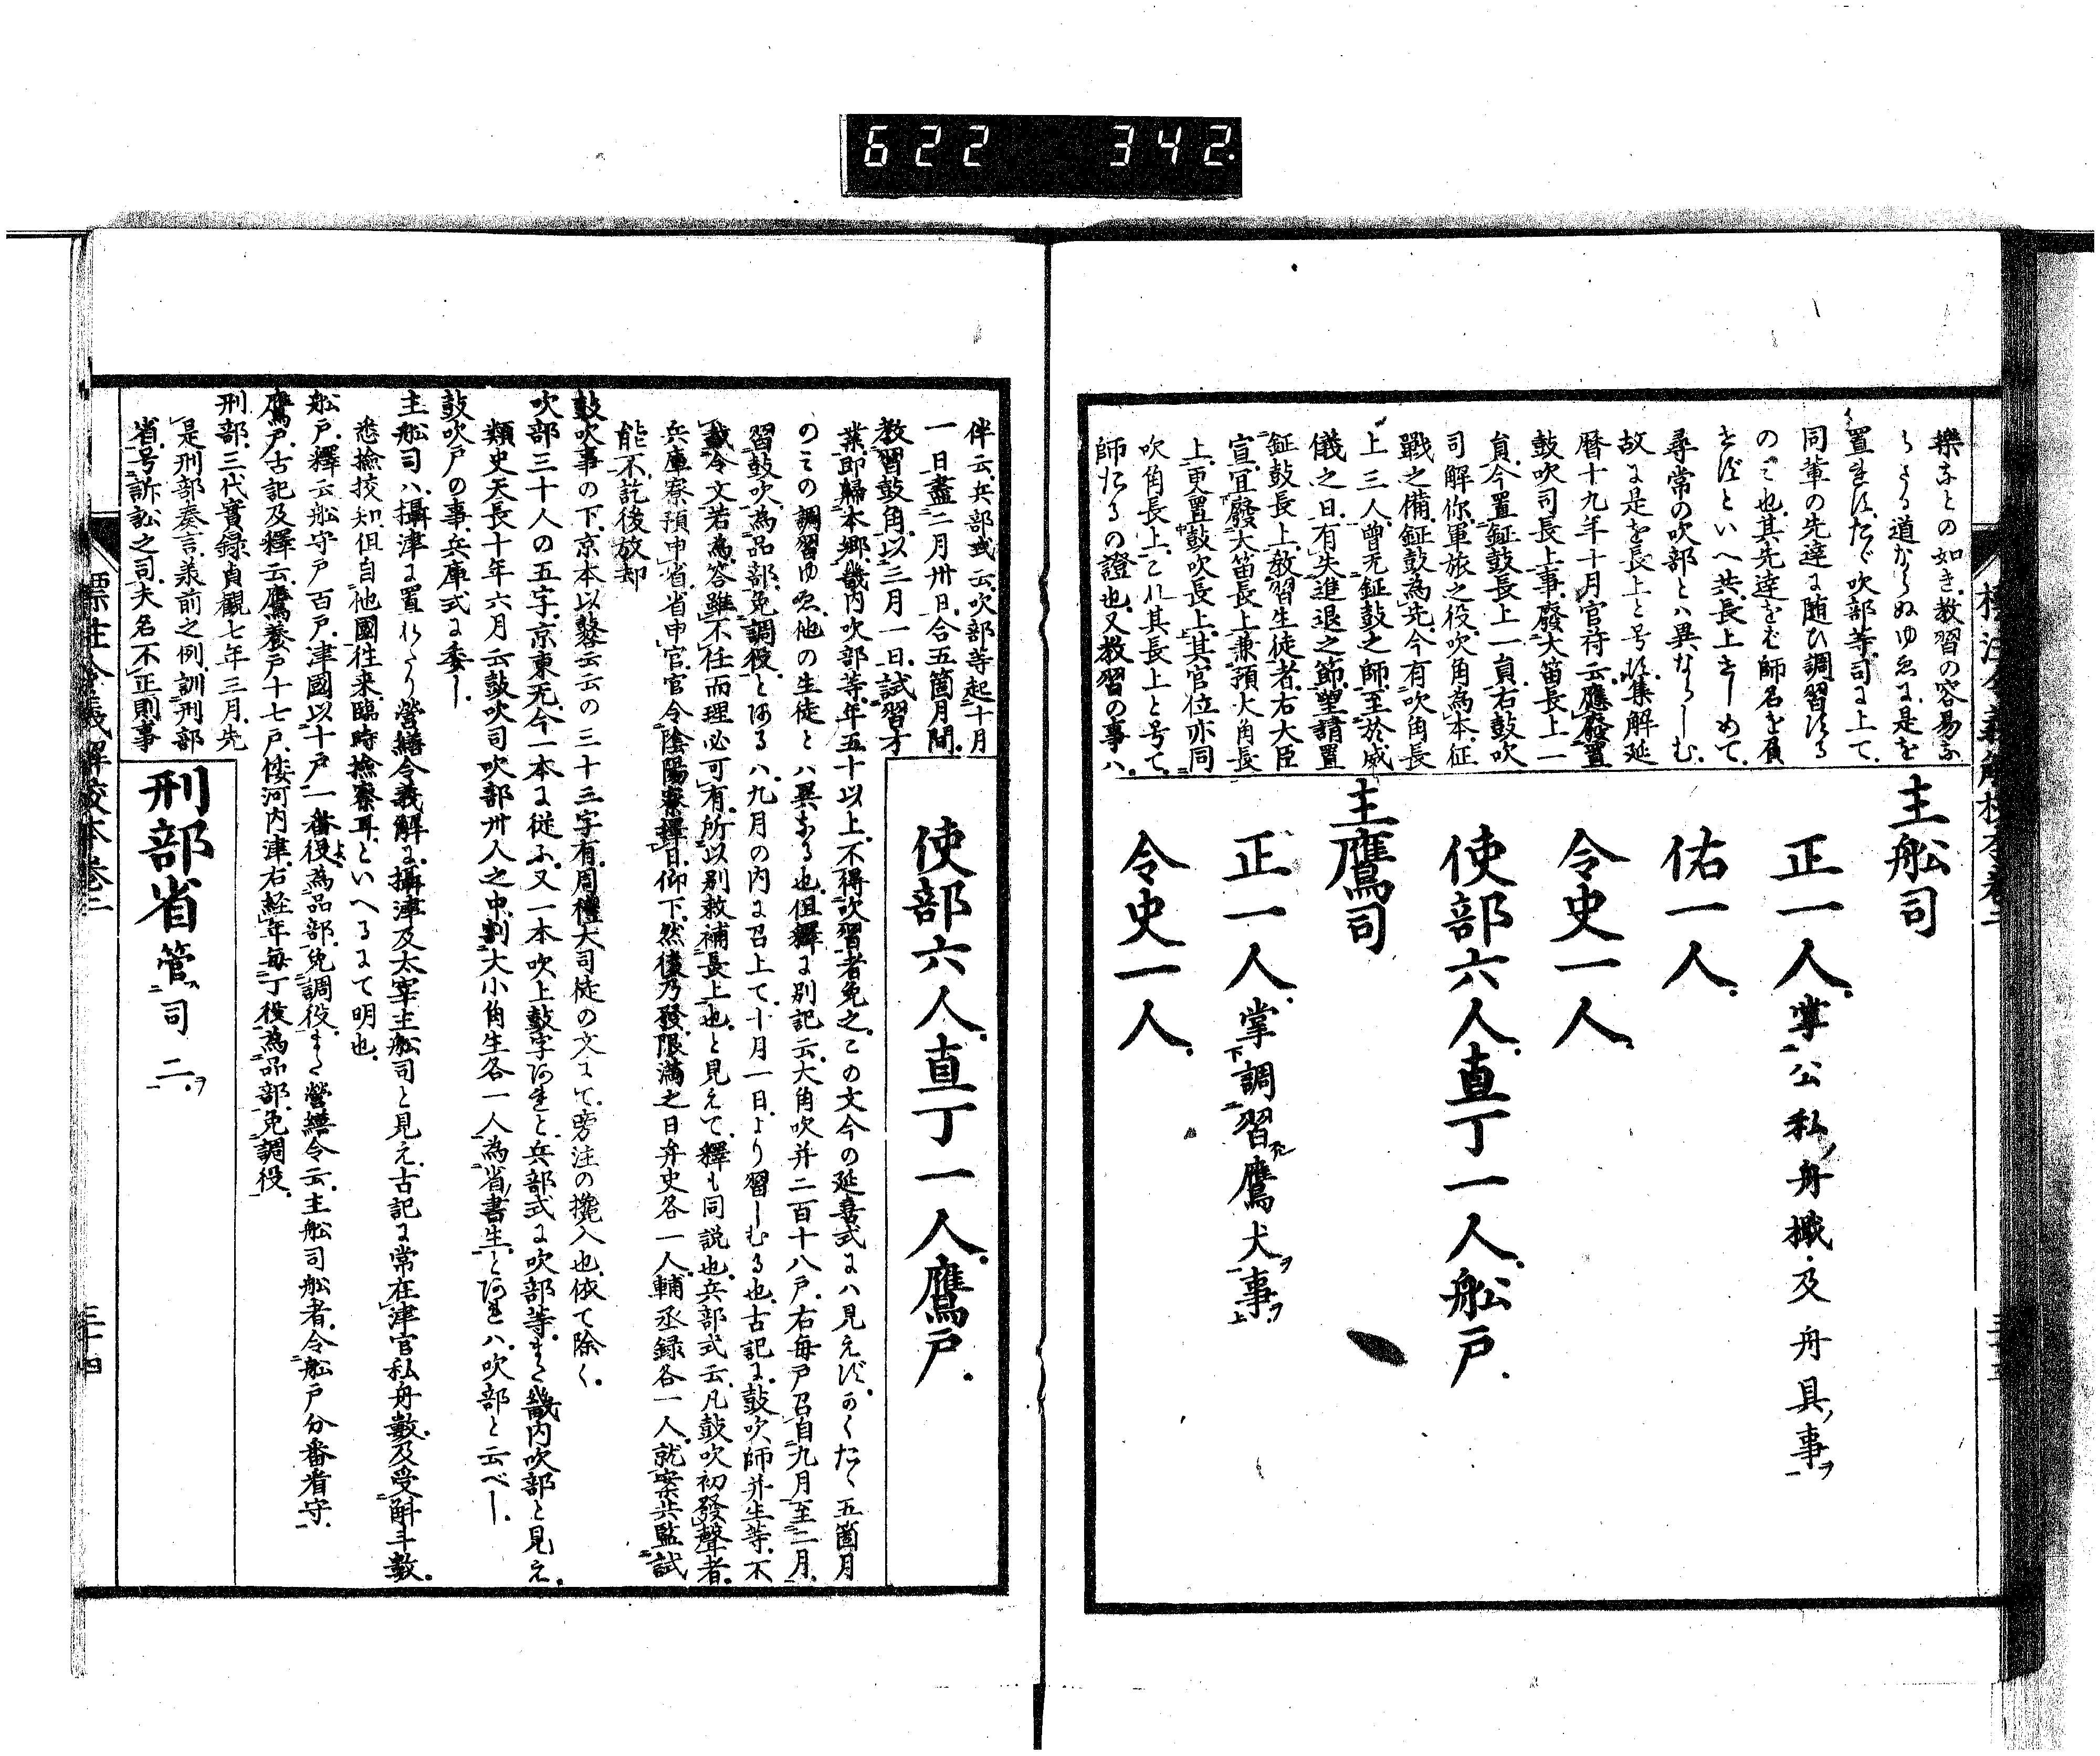 622 342
樂などの如き教習の容易な
らざる道からぬゆゑに是を
置れず.たゞ吹部等.司に上て.
同輩の先達に随ひ調習する
のミ也.其先達をば師名を負
せずといへ共.長上せしめて.
尋常の吹部とハ異ならしむ.
故に是を長上と号す.集解延
暦十九年十月官符云.應廢置
鼓吹司長上事.廢大笛長上一
員.今置鉦鼓長上一員.右鼓吹
司解偁.軍旅之役.吹角為本.征
戰之備.鉦鼓為先.今有吹角長
上三人.曾无鉦鼓之師.至於威
儀之日.有失進退之節.望請置
鉦鼓長上.教習生徒者.右大臣
宣.宜廢大笛長上.兼預大角長
上.更置鼓吹長上.其官位亦同
吹角長上.これ其長上と号て.
師たるの證也.又教習の事ハ.
主舩司
正一人.掌公私舟檝.及舟具事
佑一人.
令史一人.
使部六人.直丁一人.舩戸.
主鷹司
正一人.掌調習鷹犬事
令史一人.
伴云.兵部式云.吹部等起十月
一日盡二月卅日.合五箇月間.
教習鼓角.以三月一日.試習才
業.即歸本郷.畿内吹部等.年五十以上.不得吹習者免之.この文今の延喜式にハ見えず.かくたゝ五箇月
のミの調習ゆゑ.他の生徒とハ異なる也.但釋に別記云.大角吹并二百十八戸.右毎戸召.自九月至二月.
習鼓吹.為品部.免調役.とあるハ.九月の内に召上て.十月一日より習しむる也.古記に.鼓吹師并生等.不
載令文若為.答.雖不任而理必可有.所以別敕補長上也.と見えて.釋も同説也.兵部式云.凡鼓吹初發聲者.
兵庫寮預申省.省申官.官令陰陽寮擇日.仰下.然後乃發.限滿之日.弁史各一人.輔丞録各一人.就案共監試
能不.訖後放却
鼓吹事の下.京本以鼛云云の三十三字有.周禮大司徒の文にて.旁注の攙入也.依て除く.
吹部三十人の五字.京東无.今一本に従ふ.又一本吹上鼓字あれど.兵部式に吹部等.また畿内吹部と見え.
類史天長十年六月云.鼓吹司吹部卅人之中.割大小角生各一人.為省書生.とあれハ.吹部と云べし.
鼓吹戸の事.兵庫式に委し
主舩司ハ攝津に置れたり.營繕令義解に.攝津及太宰主舩司と見え.古記に常在津官私舟數.及受斛斗數.
悉撿挍知.但自他國往来.臨時撿察耳.といへるにて明也.
舩戸.釋云.舩守戸百戸.津國.以十戸一番役.為品部.免調役.また營繕令云.主舩司舩者.令舩戸分番看守.
鷹戸.古記及釋云.鷹養戸十七戸.倭河内津.右經年毎丁役.為品部.免調役.
刑部.三代實録.貞觀七年三月.先
是刑部奏言.承前之例.訓刑部
省.号訴訟之司.夫名不正則事
使部六人.直丁一人.鷹戸.
刑部省 管司二